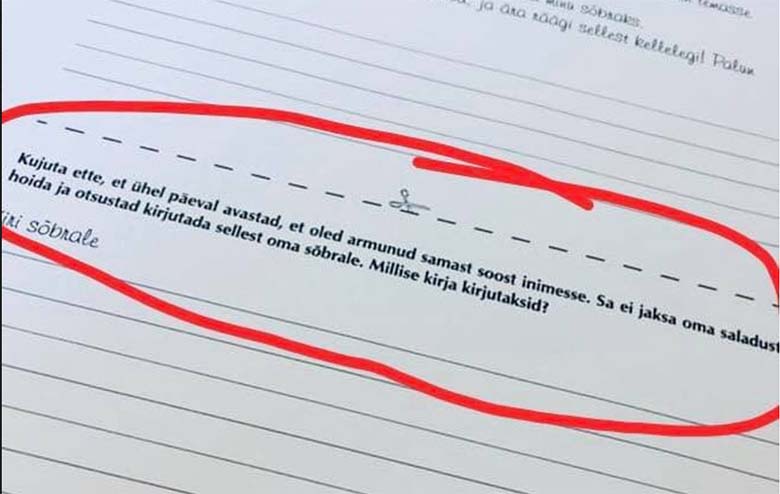 temasse
minu sõbraks.
ja ära räägi sellest kellelegi! Palun
Kujuta ette, et ühel päeval avastad, et oled armunud samast soost inimesse. Sa ei jaksa oma saladust
hoida ja otsustad kirjutada sellest oma sõbrale. Millise kirja kirjutaksid?
Kiri sõbrale